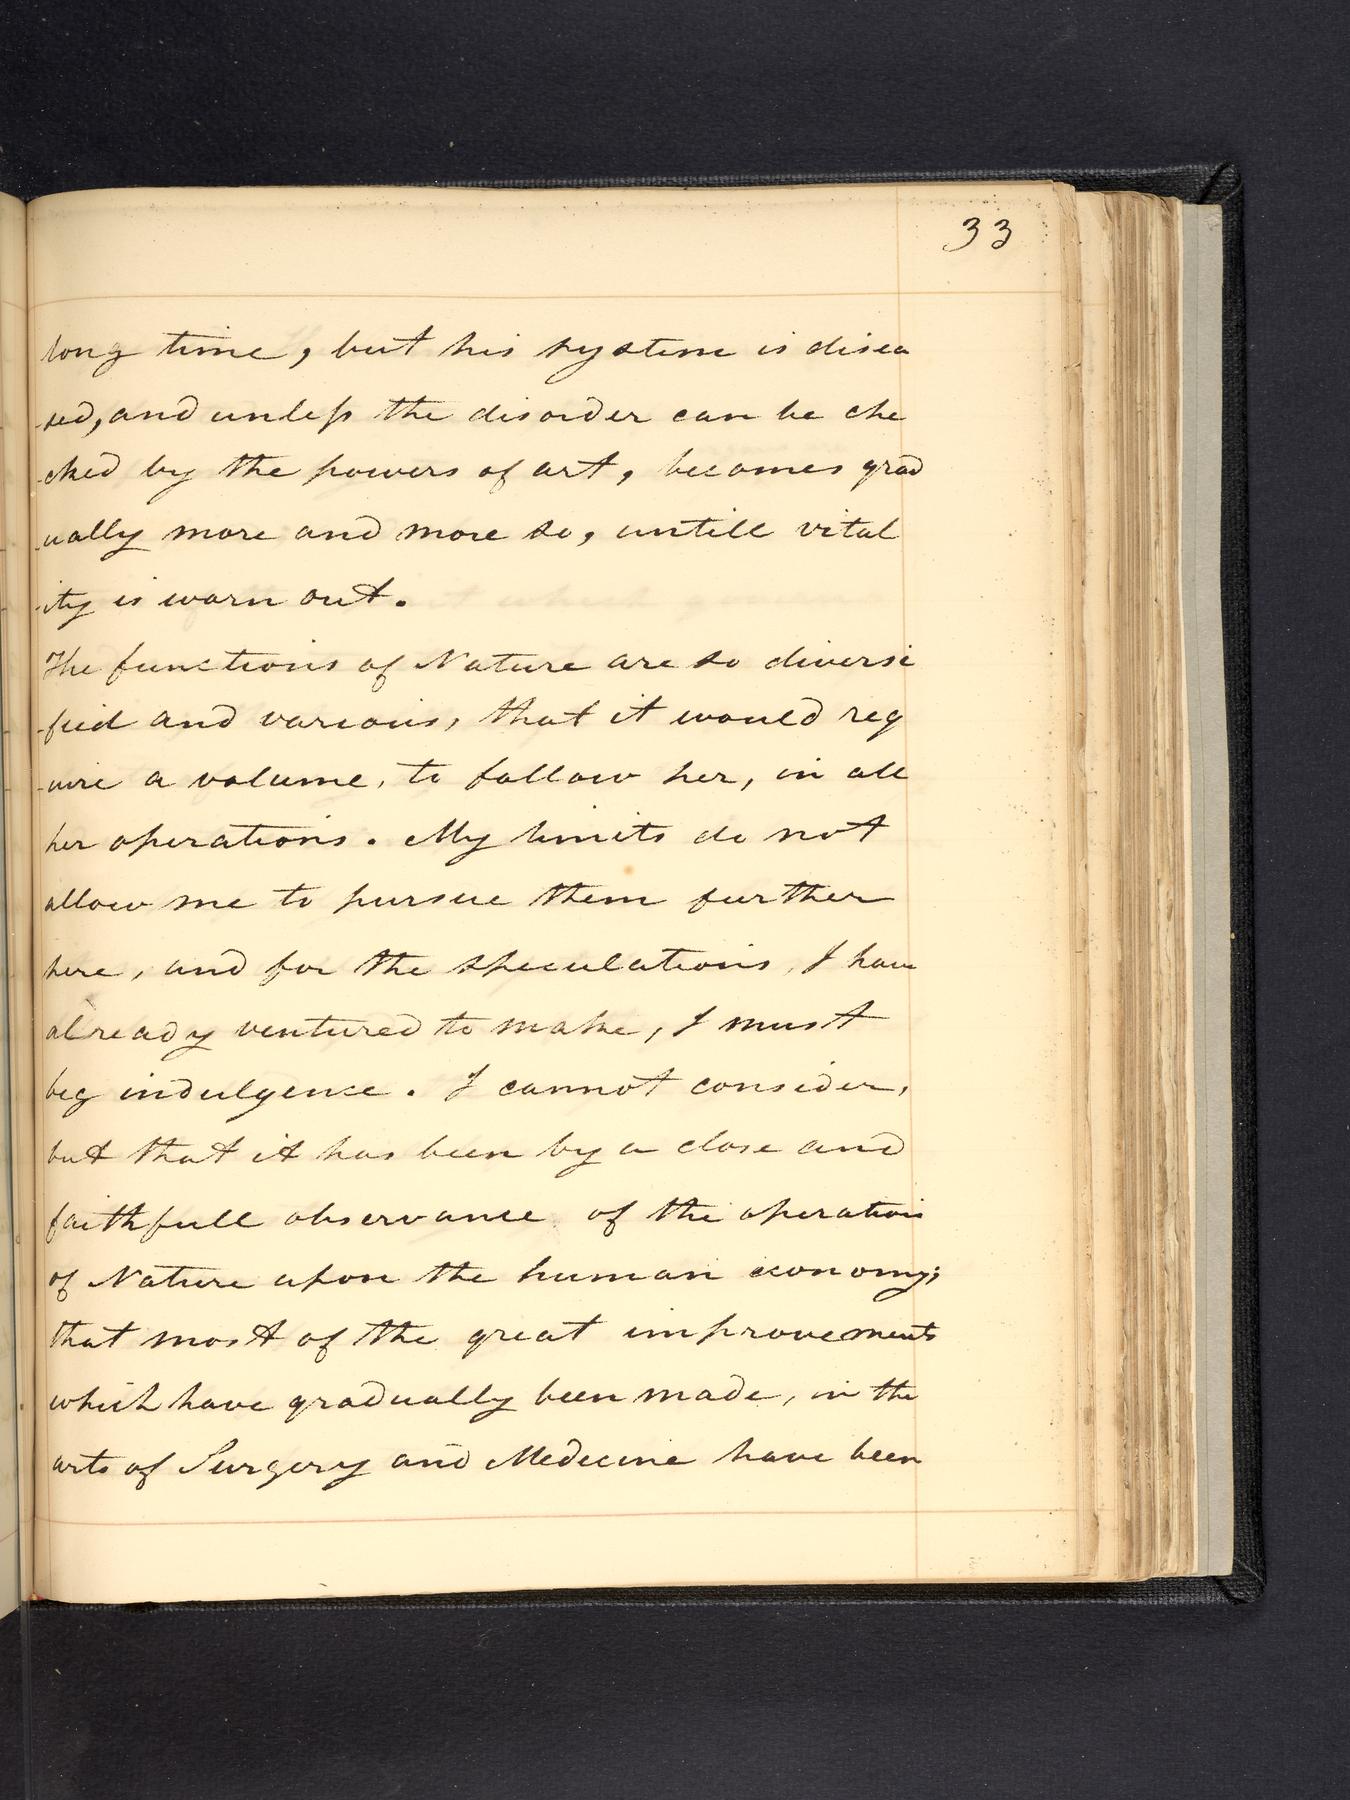 33
long time, but his system is disea
-sed, and unless the disorder can be che
-cked by the powers of art, becomes grad
-ually more and more so, untill vital
-ity is worn out.
The functions of Nature are so diversi
-fied and various, that it would req
-uire a volume, to follow her, in all
her operations. My limits do not
allow me to pursue them further
here, and for the speculations, I have
already ventured to make, I must
beg indulgence. I cannot consider,
but that it has been by a close and
faithfull observance of the operations
of Nature upon the human economy;
that most of the great improvements
which have gradually been made, in the
arts of Surgery and Medecine have been